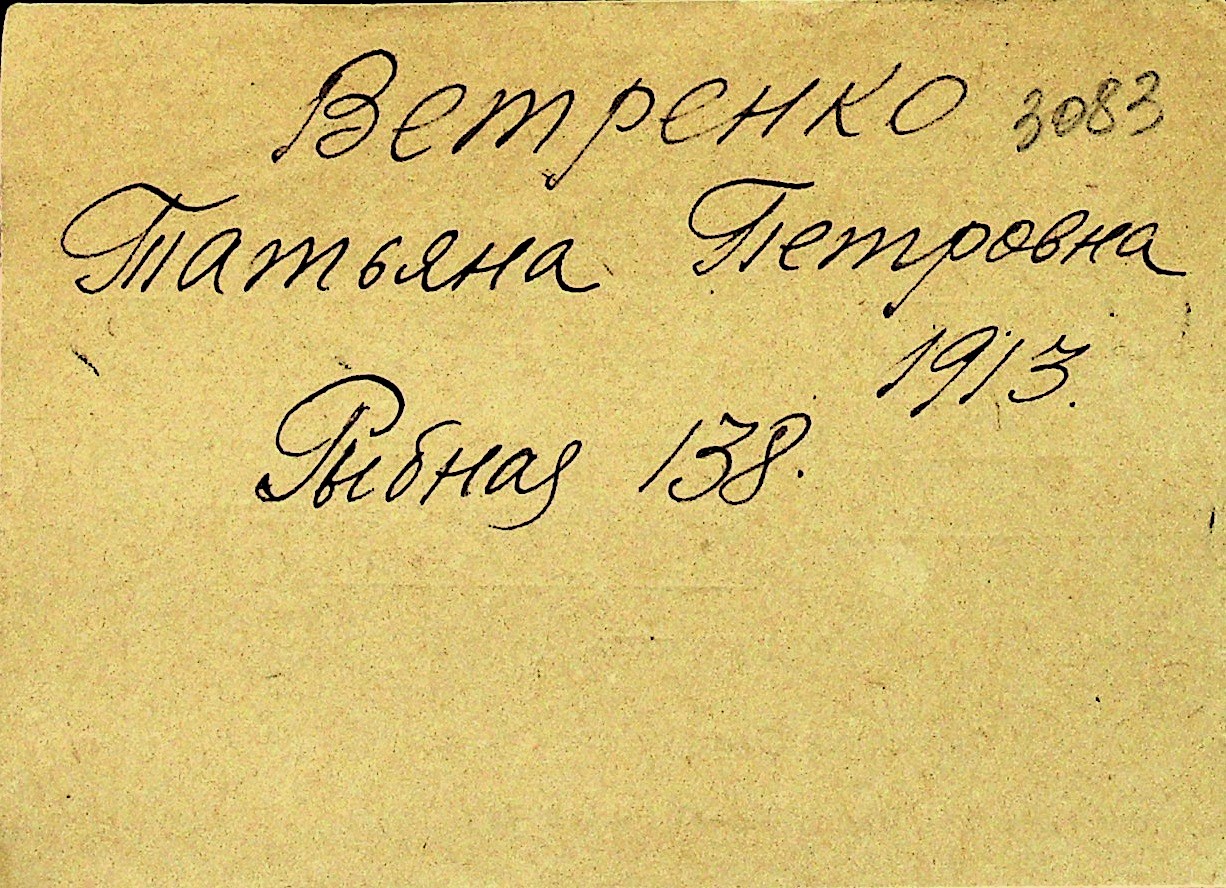 Ветренко 3083
Татьяна Петровна
1913.
Рыбная 138.